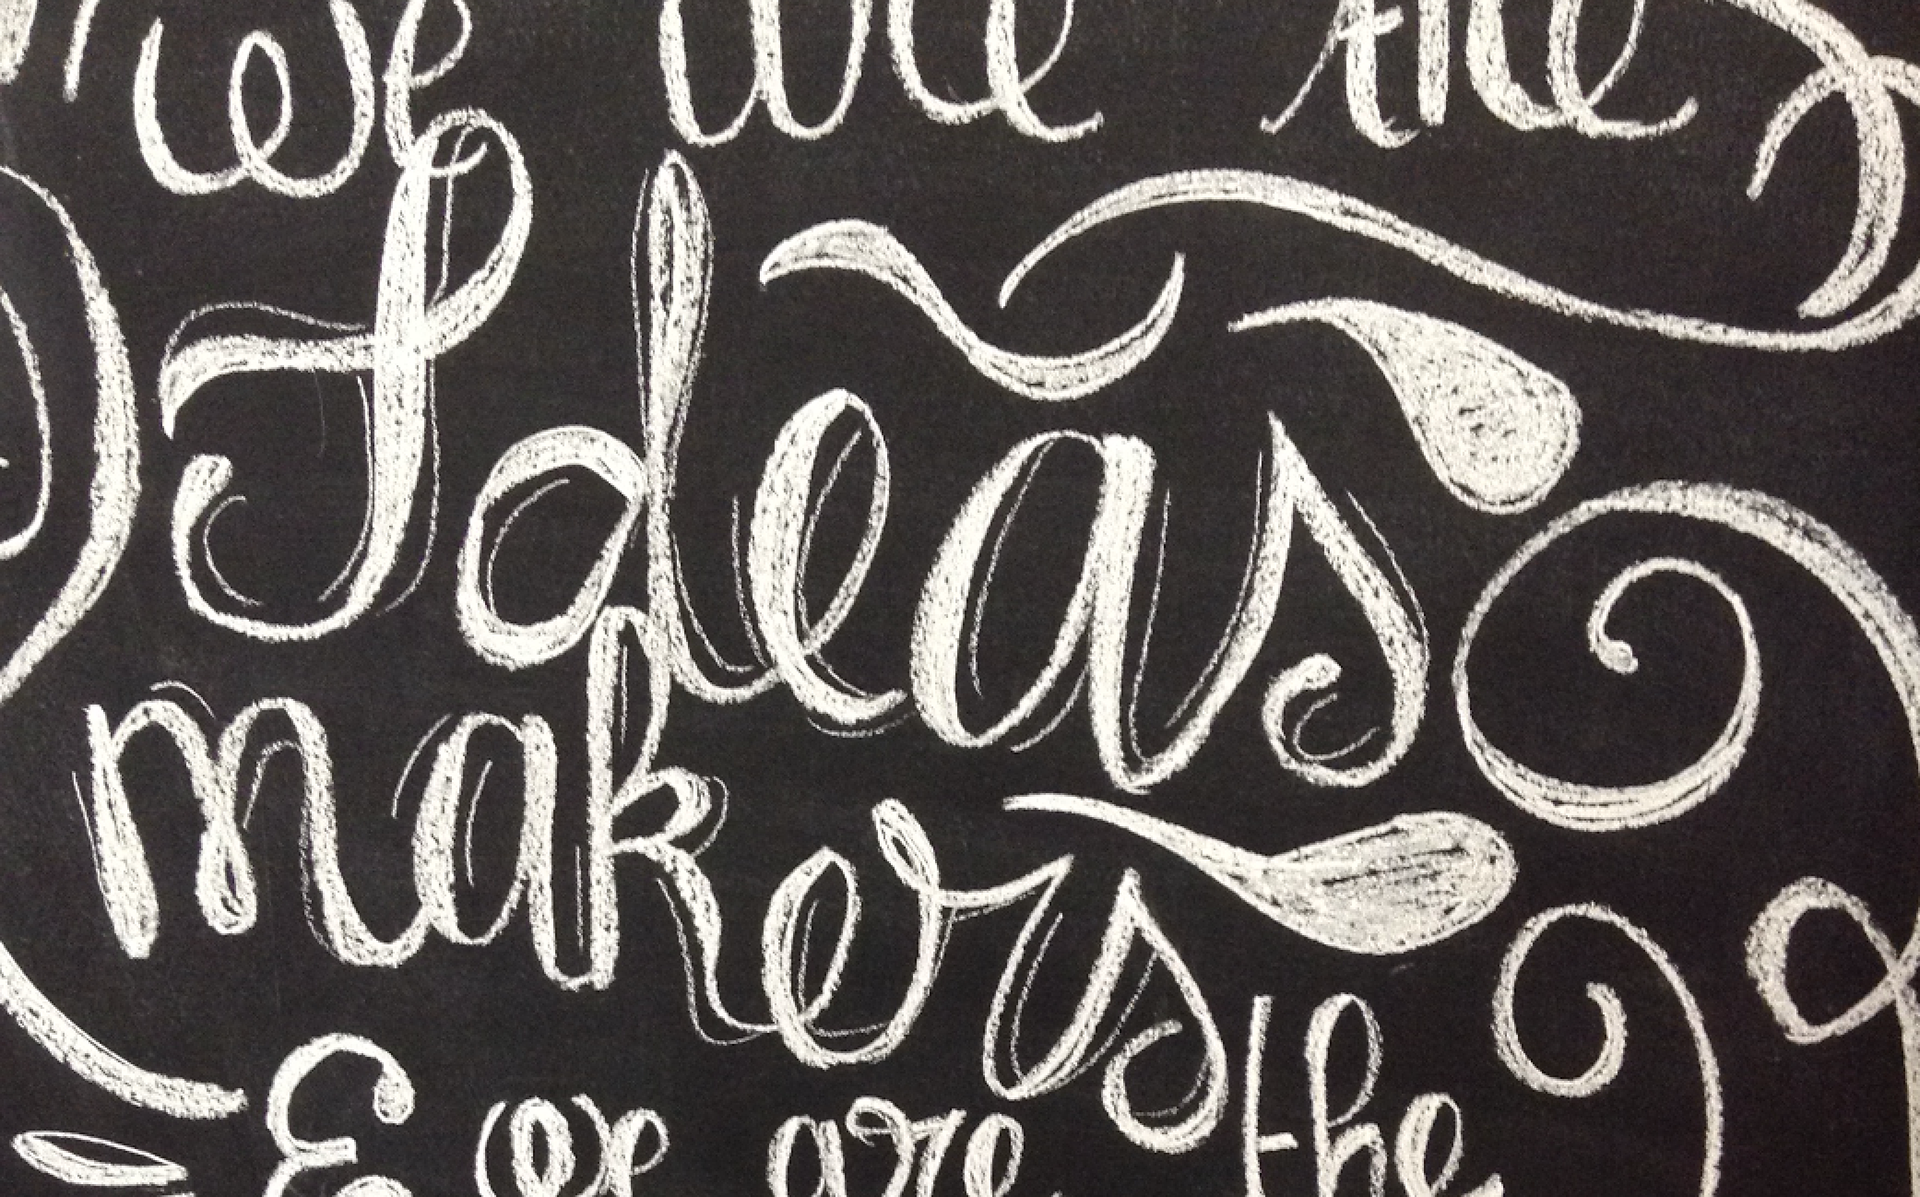 we are the
Ideas
makers
& we are the